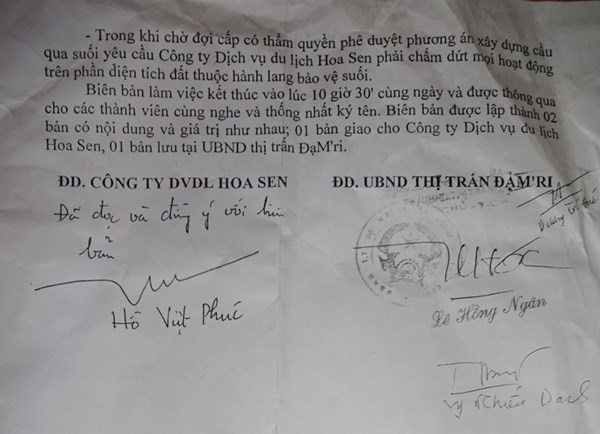 - Trong khi chờ đợi cấp có thẩm quyền phê duyệt phương án xây dựng cầu
qua suối yêu cầu Công ty Dịch vụ du lịch Hoa Sen phải chấm dứt mọi hoạt động
trên phần diện tích đất thuộc hành lang bảo vệ suối.
Biên bản làm việc kết thúc vào lúc 10 giờ 30' cùng ngày và được thông qua
cho các thành viên cùng nghe và thống nhất ký tên. Biên bản được lập thành 02
bản có nội dung và giá trị như nhau; 01 bản giao cho Công ty Dịch vụ du lịch
Hoa Sen, 01 bản lưu tại UBND thị trấn ĐạM'ri.
ĐD. CÔNG TY DVDL HOA SEN
ĐD. UBND THỊ TRẤN ĐẠM'RI
Đã đọc và đồng ý với biên
bản
Hồ Việt Phúc
Lê Hồng Ngân